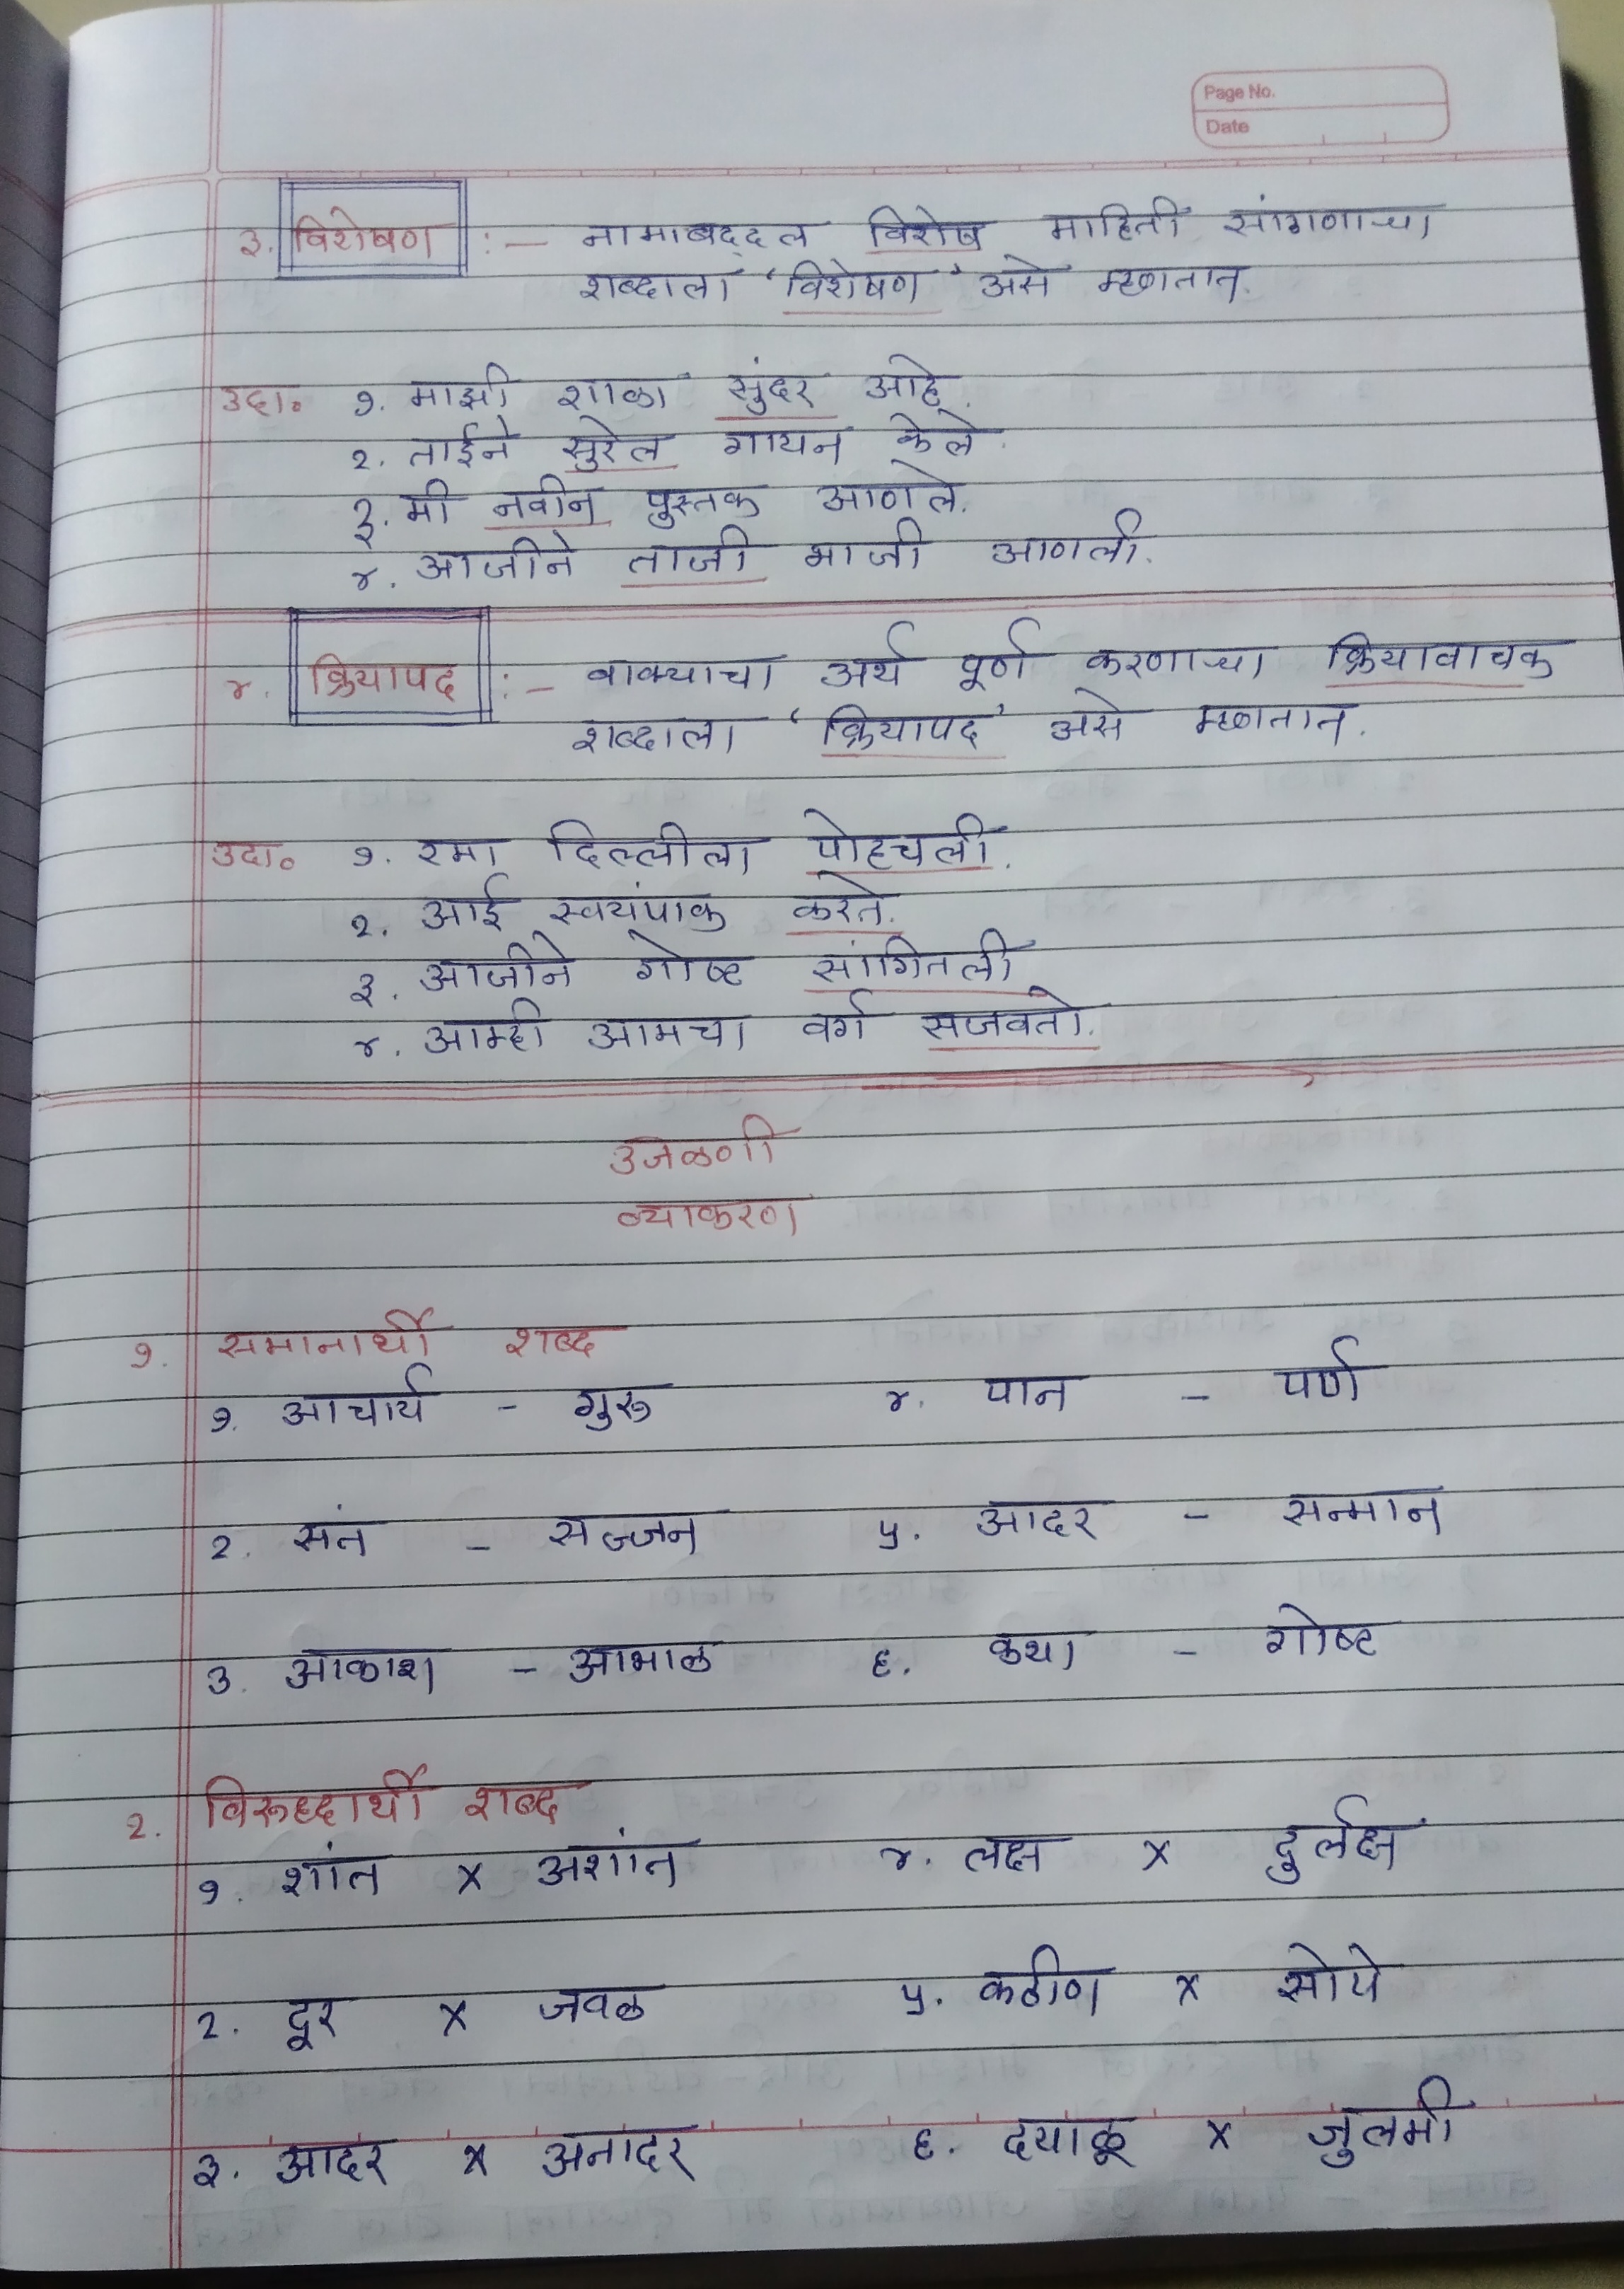 Page No.
Date
३. विशेषण :- नामाबद्दल विशेष माहिती सांगणाऱ्या
शब्दाला 'विशेषण' असे म्हणतात.
उदा० १. माझी शाळा सुंदर आहे.
२. ताईने सुरेल गायन केले.
३. मी नवीन पुस्तक आणले.
४. आजीने ताजी भाजी आणली.
४. क्रियापद :- वाक्याचा अर्थ पूर्ण करणाऱ्या क्रियावाचक
शब्दाला 'क्रियापद' असे म्हणतात.
उदा० १. रमा दिल्लीला पोहचली.
२. आई स्वयंपाक करते.
३. आजीने गोष्ट सांगितली
४. आम्ही आमचा वर्ग सजवतो.
उजळणी
व्याकरण
१. समानार्थी शब्द
१. आचार्य - गुरु ४. पान - पर्ण
२. संत - सज्जन ५. आदर - सन्मान
३. आकाश - आभाळ ६. कथा - गोष्ट
२. विरुध्दार्थी शब्द
१. शांत x अशांत ४. लक्ष x दुर्लक्ष
२. दूर x जवळ ५. कठीण x सोपे
३. आदर x अनादर ६. दयाळू x जुलमी